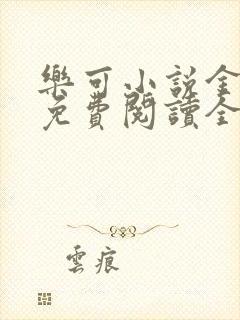 樂可小說全
免費閱讀全
雲痕